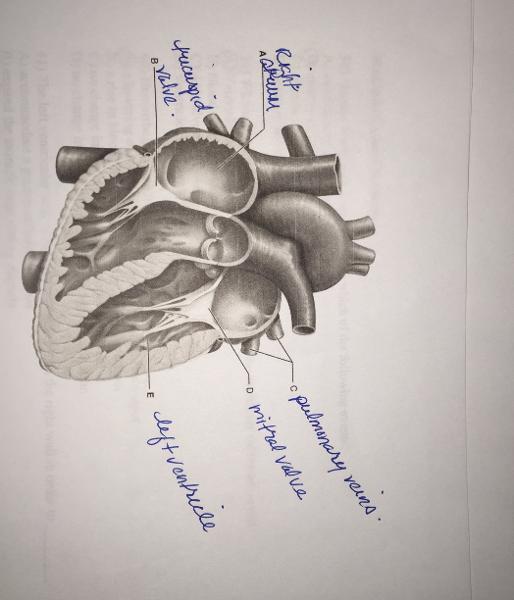 Right
A Atrium
tricuspid
B valve.
C pulmonary veins.
D mitral valve
E left ventricle